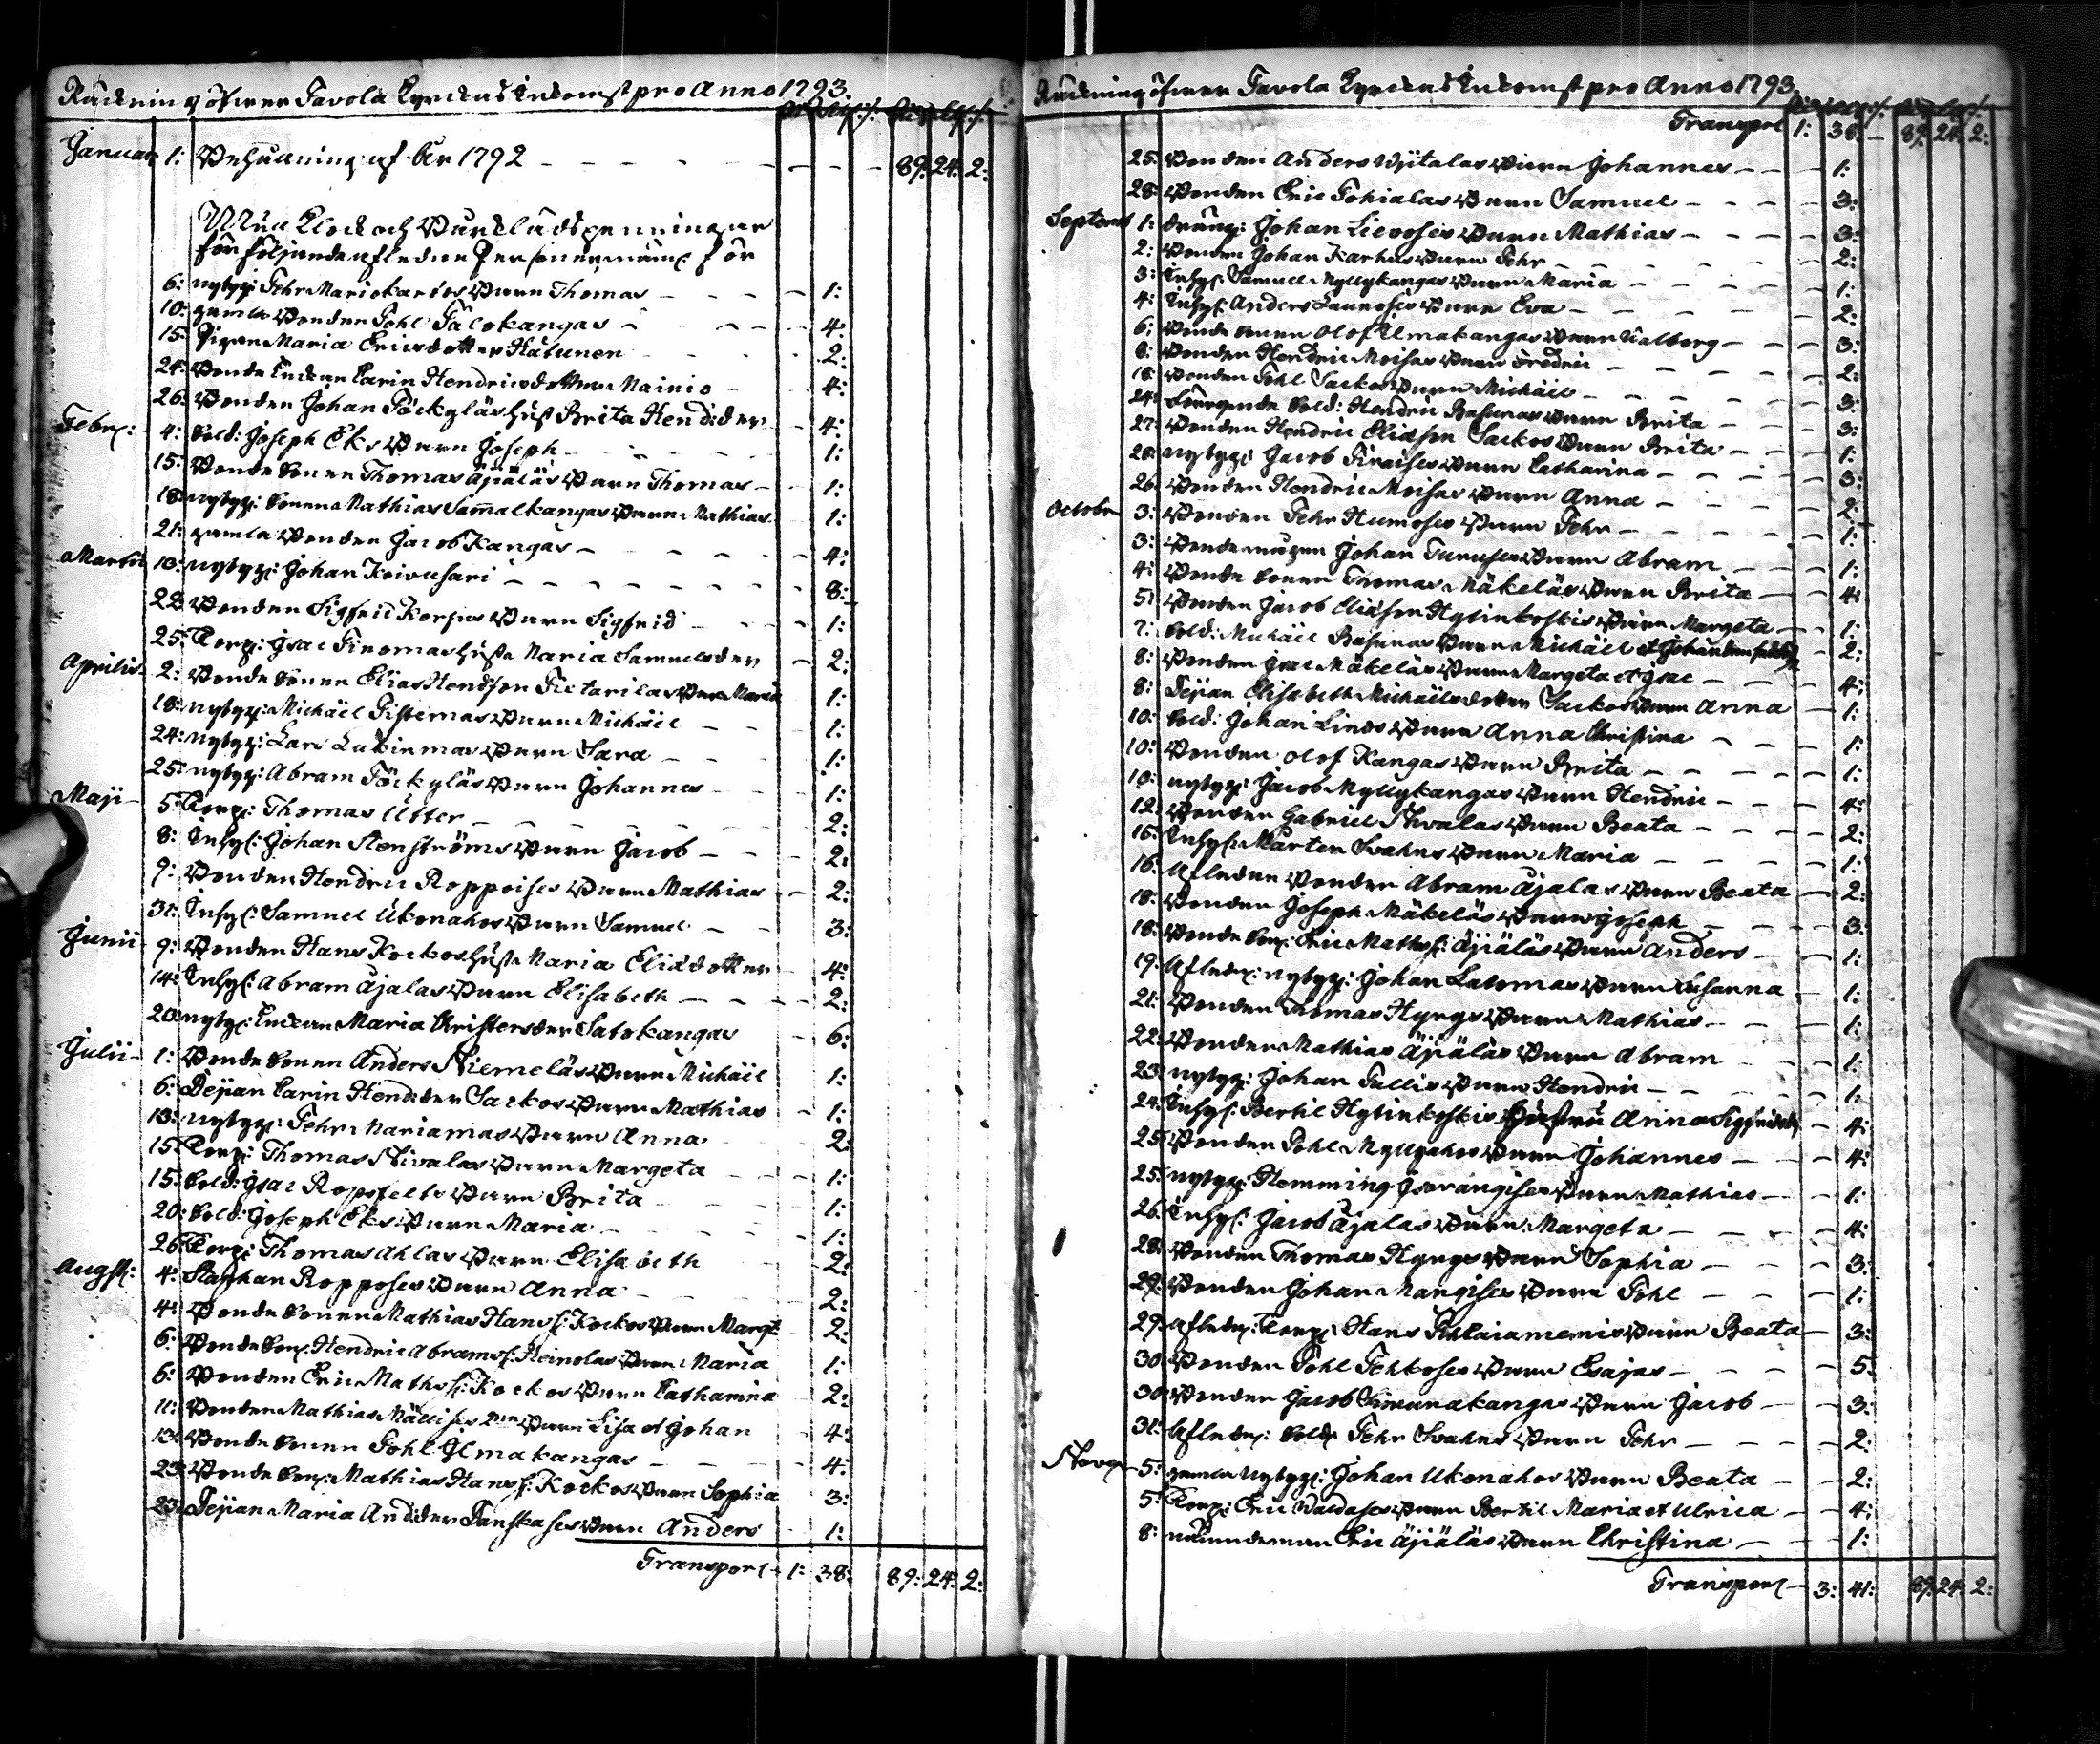 Räckning öfwer Pavola Kyrckas Inkomst pro Anno 1793.
Januar 1: Behållning af År 1792 - - - 89: 24: 2:
för följande aflednе Personer nämnl för
6: nybygg: Pehr Mariokarios Barn Thomas - - 1:
10: gamla Bonden Pohl Palokangas - - 4:
15: Pigan Maria Ericsdotter Hätunen 2:
24: Bonde Enckan Carin Hendricsdotter Mainio - 4:
26: Bonden Johan Pöckyläs hust Brita Hend:der 4:
Febr: 4: Sold: Joseph Eks Barn Joseph - - 1:
15: Bonde Sonen Thomas Äjäläs Barn Thomas - 1:
18: nybygg: Sonen Mathias Sammalkangas Barn Mathias 1:
21: gamla Bonden Jacob Kangas - - 4:
Martii 13: nybygg: Johan Koivusari - - 8:
22: Bonden Sigfrid Korhas Barn Sigfrid - - 1:
25: Torp: Isac Tiromas hust Maria Samuelsder - 2:
Aprilis 2: Bonde Sonen Elias Hendrson Pietarilas Barn Maria 1:
18: nybygg: Michäel Pistemas Barn Michäel - 1:
24: nybygg: Lars Lukinmas Barn Sara - - 1:
25: nybygg: Abram Pöckyläs Barn Johannes - - 1:
Maji 5: Torp: Thomas Utter - - 2:
8: Inhys: Johan Stenströms Barn Jacob - - 2:
9: Bonden Hendric Roppoises Barn Mathias - - 2:
31: Inhys: Samuel Ukonahos Barn Samuel - - 3:
Junii 9: Bonden Hans Kockos hust Maria Eliædotter - 4:
14: Inhys: Abram Äjalas Barn Elisabeth - - 2:
20: nybyg: Enckan Maria Christersder Satokangas - 6:
Julii 1: Bonde Sonen Anders Niemeläs Barn Michäel 1:
6: Pejian Carin Hend:der Sarkos Barn Mathias - 1:
13: nybygg: Pehr Mariamas Barn Anna 2:
15: Torp: Thomas Nivalas Barn Margeta - - 1:
15: Sold: Isac Ropsfelts Barn Brita - - 1:
20: Sold: Joseph Eks Barn Maria - - 1:
26: Torp: Thomas Ahlas Barn Elisabeth 2:
Augst: 4: Staphan Ropposes Barn Anna - - 2:
4: Bonde Sonen Mathias Hanss: Kockos Barn Margt 2:
6: Bonde Son: Hendric Abramss: Heinolas Barn Maria 1:
6: Bonden Eric Mathss: Kockos Barn Catharina 2:
11: Bonden Mathias Mällises Barn Lisa et Johan - 4:
13: Bonde Sonen Pohl Ilmakangas - - 4:
23: Bonde Son: Mathias Hanss: Kockos Barn Sophia 3:
23: Pejian Maria And:der Tanskases Barn Anders - 1:
Transport - 1: 38: 89: 24: 2:
Räckning öfwer Pavola Kyrckas Inkomst pro Anno 1793.
Transport 1: 38: - 89: 24: 2:
25: Bonden Anders Wjitalas Barn Johannes - - 1:
28: Bonden Eric Tohialas Barn Samuel - - 3:
Septemb 1: dräng: Johan Lievoses Barn Mathias - - 3:
2: Bonden Johan Karhus Barn Pehr - - 2:
3: Inhys: Samuel Myllykangas Barn Maria - - 1:
4: Inhys: Anders Launoses Barn Eva - - 2:
6: Bonde Sonen Olof Ilmakangas Barn Walborg - - 3:
8: Bonden Hendric Moisas Barn Fredric - - 2:
18: Bonden Pohl Sarkos Barn Michäel - - 3:
24: Sold: Hendric Basunas Barn Brita - - 3:
27: Bonden Hendric Eliæson Sarkos Barn Brita - - 1:
28: nybygg: Jacob Piraises Barn Catharina - - 3:
26: Bonden Hendric Moisas Barn Anna - - 2:
Octobr 3: Bonden Pehr Humoses Barn Pehr - - 1:
3: Johan Turuses Barn Abram - - 1:
4: Bonde Sonen Thomas Mäkeläs Barn Brita - - 4:
5: Bonden Jacob Eliæson Hyttinkoskis Barn Margeta - 1:
7: Sold: Michäel Basunas Barn Michäel et Johan - 2:
8: Bonden Isac Mäkeläs Barn Margeta et Isac - - 4:
8: Pejian Elisabeth Michäelsdotter Sarkos Barn Anna - 1:
10: Sold: Johan Linds Barn Anna Christina - - 1:
10: Bonden Olof Kangas Barn Brita - - 1:
10: nybygg: Jacob Myllykangas Barn Hendric - - 4:
12: Bonden Gabriel Nivalas Barn Beata - - 2:
15: Inhys: Mårten Svahns Barn Maria - - 1:
16: Aflednе Bonden Abram Äjalas Barn Beata - 2:
18: Bonden Joseph Mäkeläs Barn Joseph - - 3:
18: Bonde Son: Eric Mathss: Äjiäläs Barn Anders - - 1:
19: Afledn: nybygg: Johan Latomas Barn Susanna 1:
21: Bonden Thomas Hyrys Barn Mathias - - 1:
22: Bonden Mathias Äjiäläs Barn Abram - - 1:
23: nybygg: Johan Tullis Barn Hendric - - 1:
24: Inhys: Bertil Hyttinkoskis Hustru Anna Sigfridsdr - 4:
25: Bonden Pohl Myllyahos Barn Johannes - - 4:
25: nybygg: Hemming Isorangises Barn Mathias - - 1:
26: Inhys: Jacob Äjalas Barn Margeta - - 4:
28: Bonden Thomas Hyrys Barn Sophia - - 3:
29: Bonden Johan Mangises Barn Pohl - - 1:
29: Afledn: Torp: Hans Pihlaiamemis Barn Beata - 3:
30: Bonden Pohl Pehkoses Barn Esajas - - 5:
30: Bonden Jacob Simunakangas Barn Jacob - - 3:
31: Afledn: Sold: Pehr Svahns Barn Pehr - - 2:
Novr 5: gamla nybygg: Johan Ukonahos Barn Beata - - 2:
5: Torp: Eric Barn Bertil Maria et Ulrica - 4:
8: Eric Äjiäläs Barn Christina - - 1:
Transport - 3: 41: 89: 24: 2: